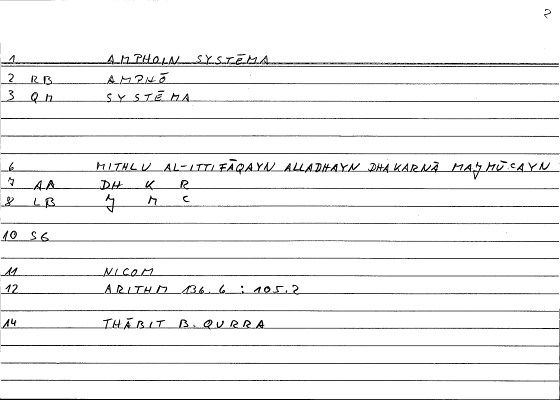 2
1 AMPHOIN SYSTĒMA
2 RB AMPHŌ
3 QM SYSTĒMA
6 MITHLU AL-ITTIFĀQAYN ALLADHAYN DHAKARNĀ MAǦMŪʿAYN
7 AA DH K R
8 LB Ǧ M ʿ
10 SG
11 NICOM
12 ARITHM 136.6 : 105.2
14 THĀBIT B. QURRA